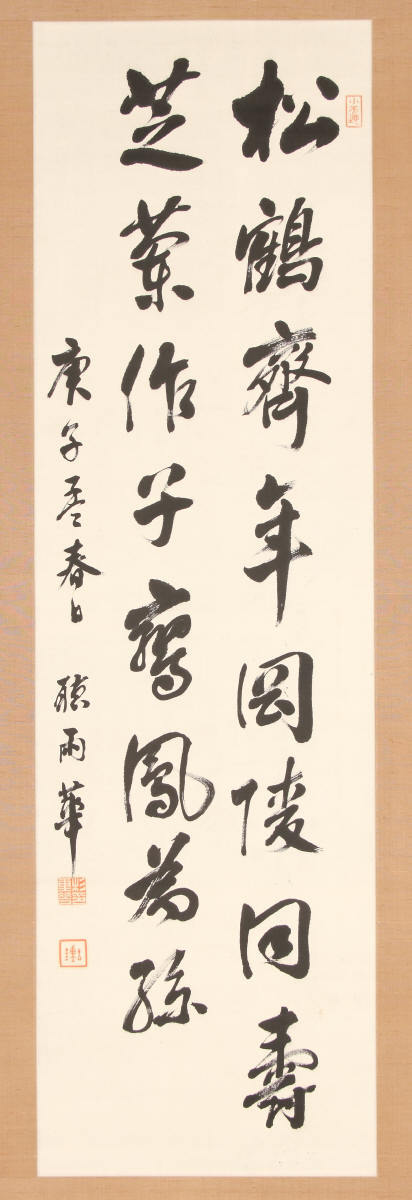 松鶴齊年岡陵同壽
芝蘭作子鸞鳳為孫
庚子孟春日 聴雨華